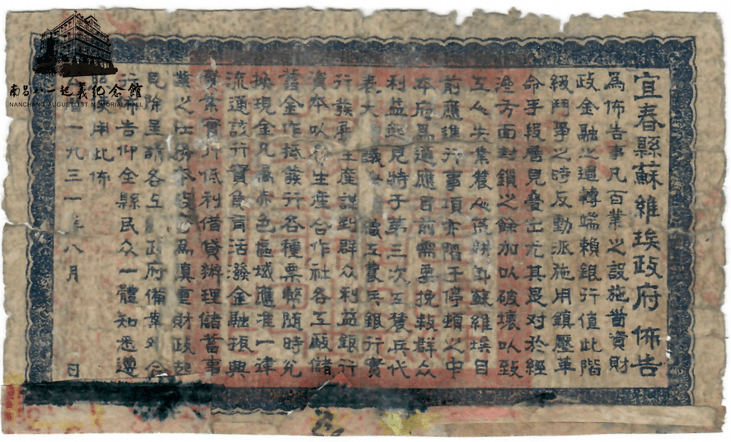 南昌八一起義纪念館
NANCHANG AUGUST 1ST MEMORIAL HALL
宜春縣蘇維埃政府佈告
為佈告事凡百業之設施啬資財
政金融之週轉端賴銀行值此階
級鬥爭之時反動派施用鎮壓革
命手段層見疊出尤其是对於經
濟方面封鎖之餘加以破壞以致
工人失業農人蘇維埃目
前應進行事項亦陷于停頓之中
本府為適應目前需要挽救群众
利益起見特于第三次工農兵代
表大議工農兵銀行實
行發展生產謀到群众利益銀行
資本以生產合作社各工厰儲
蓄金作抵發行各種票幣隨時兌
換現金凡属赤色區域應准一律
流通該行資負育活潑金融振興
實業實行低利借貸辦理儲蓄事
業之任務本政府為慎重財政起
見除呈請各工政府備案外合
行佈告仰全縣民众一體知悉遵
照用此佈
一九三一年八月 日